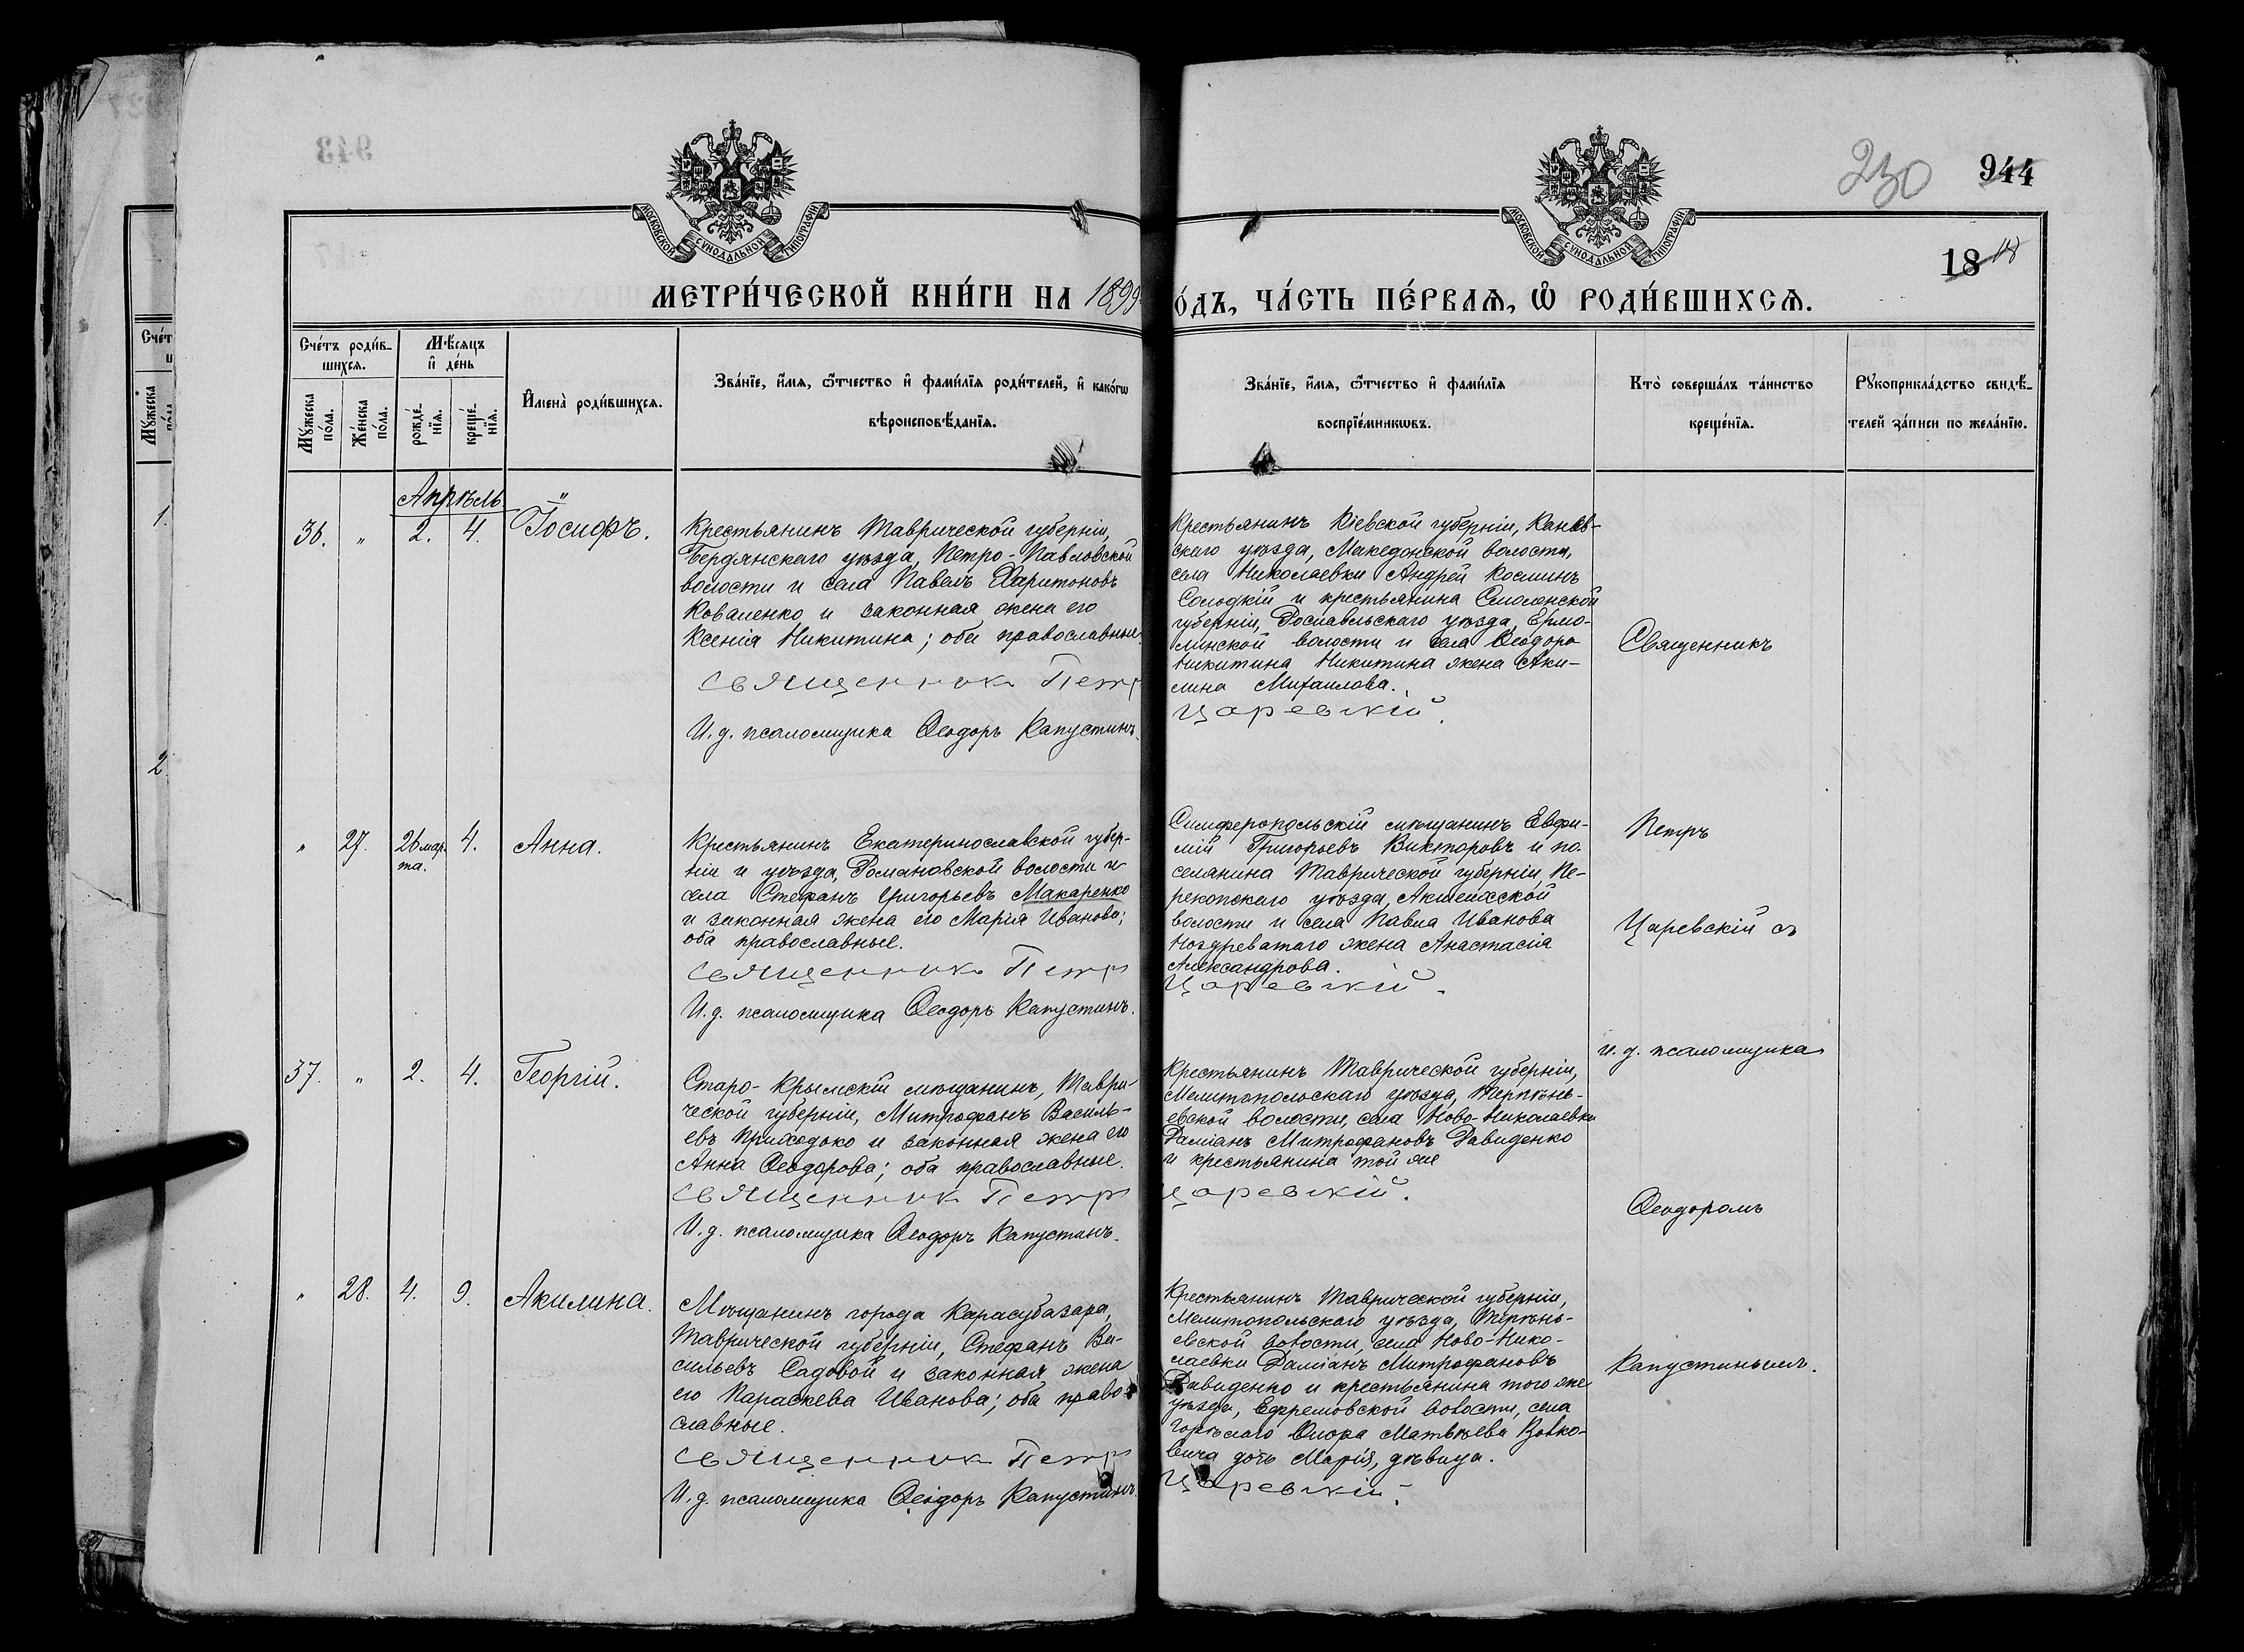 230 944
МОСКОВСКОЙ СѴНОДАЛЬНОЙ ТИПОГРАФІИ
МОСКОВСКОЙ СѴНОДАЛЬНОЙ ТИПОГРАФІИ
18
МЕТРИ́ЧЕСКОЙ КНИ́ГИ НА 1899
О́ДЪ, ЧА́СТЬ ПЕ́РВАѦ, Ѡ҃ РОДИ́ВШИХСѦ.
Сче́тъ роди́в-
шихсѧ.
Мѣ́сѧцъ
и҆ де́нь
Мꙋ́жеска
по́ла.
Же́нска
по́ла.
рожде́-
нїѧ.
креще́-
нїѧ.
И҆мена̀ роди́вшихсѧ.
Зва́нїе, и҆́мѧ, ѻ҆́тчество и҆ фами́лїѧ роди́телей, и҆ како́гѡ
вѣроисповѣ́данїѧ.
Зва́нїе, и҆́мѧ, ѻ҆́тчество и҆ фами́лїѧ
воспрїе́мникѡвъ.
Кто̀ соверша́лъ та́инство
креще́нїѧ.
Рꙋкоприкла́дство свидѣ́-
телей за́писи по жела́нїю.
Апрѣль
36. " 2. 4. Іосифъ.
Крестьянинъ Таврической губерніи,
Бердянскаго уѣзда, Петро-Павловской
волости и села Павелъ Харитоновъ
Коваленко и законная жена его
Ксенія Никитина; оба православные.
Священник Петр
И. д. псаломщика Ѳеодоръ Капустинъ.
Крестьянинъ Кіевской губерніи, Канев-
скаго уѣзда, Македонской волости,
села Николаевки Андрей Косминъ
Солодкій и крестьянина Смоленской
губерніи, Рославльскаго уѣзда, Ермо-
линской волости и села Ѳеодора
Никитина Никитина жена Аки-
лина Михаилова.
Царевскій.
Священникъ
" 27. 26 мар-
та. 4. Анна.
Крестьянинъ Екатеринославской губер-
ніи и уѣзда, Романовской волости и
села Стефанъ Григорьевъ Макаренко
и законная жена его Марія Иванова;
оба православные.
Священник Петр
И. д. псаломщика Ѳеодоръ Капустинъ.
Симферопольскій мѣщанинъ Евфи-
мій Григорьевъ Викторовъ и по-
селянина Таврической губерніи, Пе-
рекопскаго уѣзда, Акшеихской
волости и села Павла Иванова
Ноздреватаго жена Анастасія
Александрова.
Царевскій.
Петръ
Царевскій съ
37. " 2. 4. Георгій.
Старо-Крымскій мѣщанинъ, Таври-
ческой губерніи, Митрофанъ Василь-
евъ Приходько и законная жена его
Анна Ѳеодорова; оба православные.
Священник Петр
И. д. псаломщика Ѳеодоръ Капустинъ.
Крестьянинъ Таврической губерніи,
Мелитопольскаго уѣзда, Терпѣнь-
евской волости, села Ново-Николаевки
Даміанъ Митрофановъ Давиденко
и крестьянина той же
Царевскій.
и. д. псаломщика
Ѳеодоромъ
" 28. 4. 9. Акилина.
Мѣщанинъ города Карасубазара,
Таврической губерніи, Стефанъ Ва-
сильевъ Садовой и законная жена
его Параскева Иванова; оба право-
славные.
Священник Петр
И. д. псаломщика Ѳеодоръ Капустинъ.
Крестьянинъ Таврической губерніи,
Мелитопольскаго уѣзда, Терпѣнь-
евской волости, села Ново-Нико-
лаевки Даміанъ Митрофановъ
Давиденко и крестьянина того же
уѣзда, Ефремовской волости, села
Матвѣева Волко-
вича дочь Марія, дѣвица.
Царевскій.
Капустинымъ.